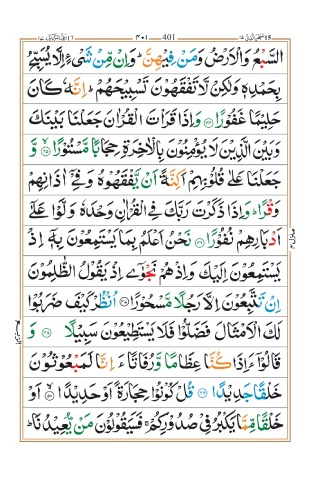 سبحن الذی ١٥ ٤٠١ 401 بنی اسرآءیل ١٧
السَّبْعُ وَالْاَرْضُ وَمَنْ فِیْهِنَّ ؕ وَاِنْ مِّنْ شَیْءٍ اِلَّا یُسَبِّحُ
بِحَمْدِهٖ وَلٰكِنْ لَّا تَفْقَهُوْنَ تَسْبِیْحَهُمْ ؕ اِنَّهٗ كَانَ
حَلِیْمًا غَفُوْرًا ﴿۴۴﴾ وَاِذَا قَرَاْتَ الْقُرْاٰنَ جَعَلْنَا بَیْنَكَ
وَبَیْنَ الَّذِیْنَ لَا یُؤْمِنُوْنَ بِالْاٰخِرَةِ حِجَابًا مَّسْتُوْرًا ﴿۴۵﴾ وَّ
جَعَلْنَا عَلٰی قُلُوْبِهِمْ اَكِنَّةً اَنْ یَّفْقَهُوْهُ وَفِیْۤ اٰذَانِهِمْ
وَقْرًا ؕ وَاِذَا ذَكَرْتَ رَبَّكَ فِی الْقُرْاٰنِ وَحْدَهٗ وَلَّوْا عَلٰۤی
اَدْبَارِهِمْ نُفُوْرًا ﴿۴۶﴾ نَحْنُ اَعْلَمُ بِمَا یَسْتَمِعُوْنَ بِهٖۤ اِذْ
یَسْتَمِعُوْنَ اِلَیْكَ وَاِذْ هُمْ نَجْوٰۤی اِذْ یَقُوْلُ الظّٰلِمُوْنَ
اِنْ تَتَّبِعُوْنَ اِلَّا رَجُلًا مَّسْحُوْرًا ﴿۴۷﴾ اُنْظُرْ كَیْفَ ضَرَبُوْا
لَكَ الْاَمْثَالَ فَضَلُّوْا فَلَا یَسْتَطِیْعُوْنَ سَبِیْلًا ﴿۴۸﴾ وَ
قَالُوْۤا ءَاِذَا كُنَّا عِظَامًا وَّرُفَاتًا ءَاِنَّا لَمَبْعُوْثُوْنَ
خَلْقًا جَدِیْدًا ﴿۴۹﴾ قُلْ كُوْنُوْا حِجَارَةً اَوْ حَدِیْدًا ﴿۵۰﴾ اَوْ
خَلْقًا مِّمَّا یَكْبُرُ فِیْ صُدُوْرِكُمْ ۚ فَسَیَقُوْلُوْنَ مَنْ یُّعِیْدُنَا ؕ